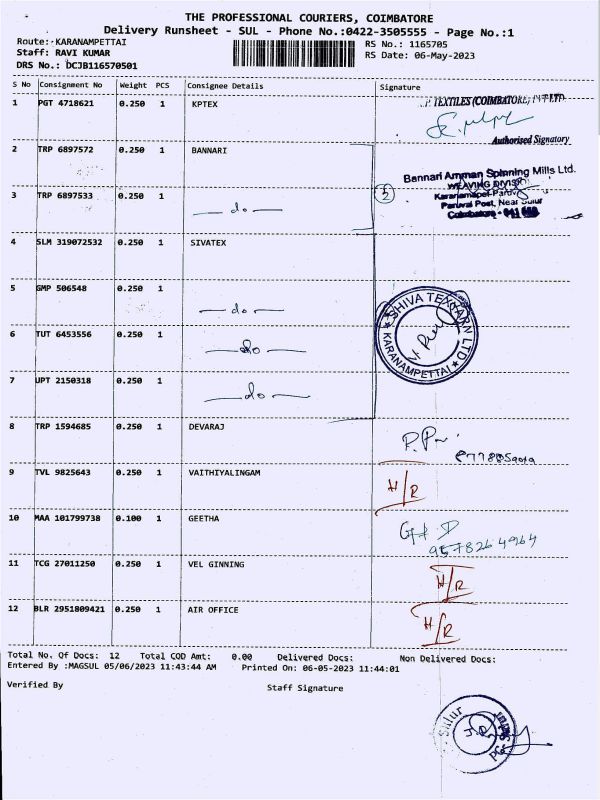 THE PROFESSIONAL COURIERS, COIMBATORE
Delivery Runsheet - SUL - Phone No.:0422-3505555 - Page No.:1
Route: KARANAMPETTAI
RS No.: 1165705
Staff: RAVI KUMAR
RS Date: 06-May-2023
DRS No.: DCJB116570501
S No Consignment No Weight PCS Consignee Details Signature
1 PGT 4718621 0.250 1 KPTEX
TEXTILES (COIMBATORE)
Authorised Signatory
2 TRP 6897572 0.250 1 BANNARI
Bannari Amman Spinning Mills Ltd.
WEAVING DIVISION
3 TRP 6897533 0.250 1 — do —
Karanampet
Paruvai Post, Near Sulur
Coimbatore
4 SLM 319072532 0.250 1 SIVATEX
5 GMP 506548 0.250 1 — do —
SHIVA TEXYARN LTD
KARANAMPETTAI
6 TUT 6453556 0.250 1 — do —
7 UPT 2150318 0.250 1 — do —
8 TRP 1594685 0.250 1 DEVARAJ
9 TVL 9825643 0.250 1 VAITHIYALINGAM H/R
10 MAA 101799738 0.100 1 GEETHA
9578264964
11 TCG 27011250 0.250 1 VEL GINNING H/R
12 BLR 2951809421 0.250 1 AIR OFFICE H/R
Total No. Of Docs: 12 Total COD Amt: 0.00 Delivered Docs: Non Delivered Docs:
Entered By :MAGSUL 05/06/2023 11:43:44 AM Printed On: 06-05-2023 11:44:01
Verified By Staff Signature
Sulur